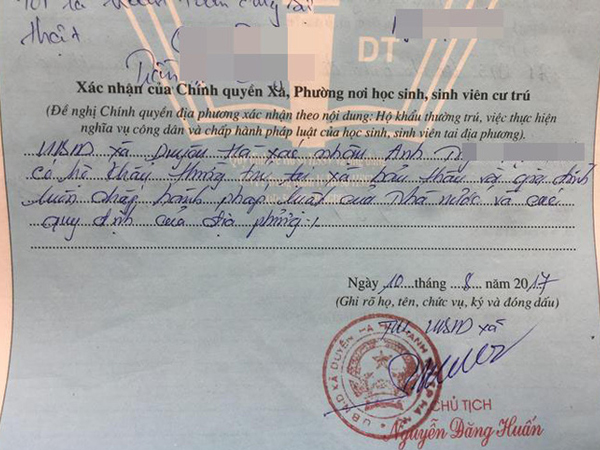 Tôi là
thật
Trần
DT
Xác nhận của Chính quyền Xã, Phường nơi học sinh, sinh viên cư trú
(Đề nghị Chính quyền địa phương xác nhận theo nội dung: Hộ khẩu thường trú, việc thực hiện
nghĩa vụ công dân và chấp hành pháp luật của học sinh, sinh viên tai địa phương).
UBND xã Duyên Hà xác nhận Anh
có hộ khẩu thường trú tại xã, bản thân và gia đình
luôn chấp hành pháp luật của nhà nước và các
quy định của địa phương.
Ngày 10 tháng 8 năm 2017
(Ghi rõ họ, tên, chức vụ, ký và đóng dấu)
TM UBND xã
U.B.N.D XÃ DUYÊN HÀ
CHỦ TỊCH
Nguyễn Đăng Huấn